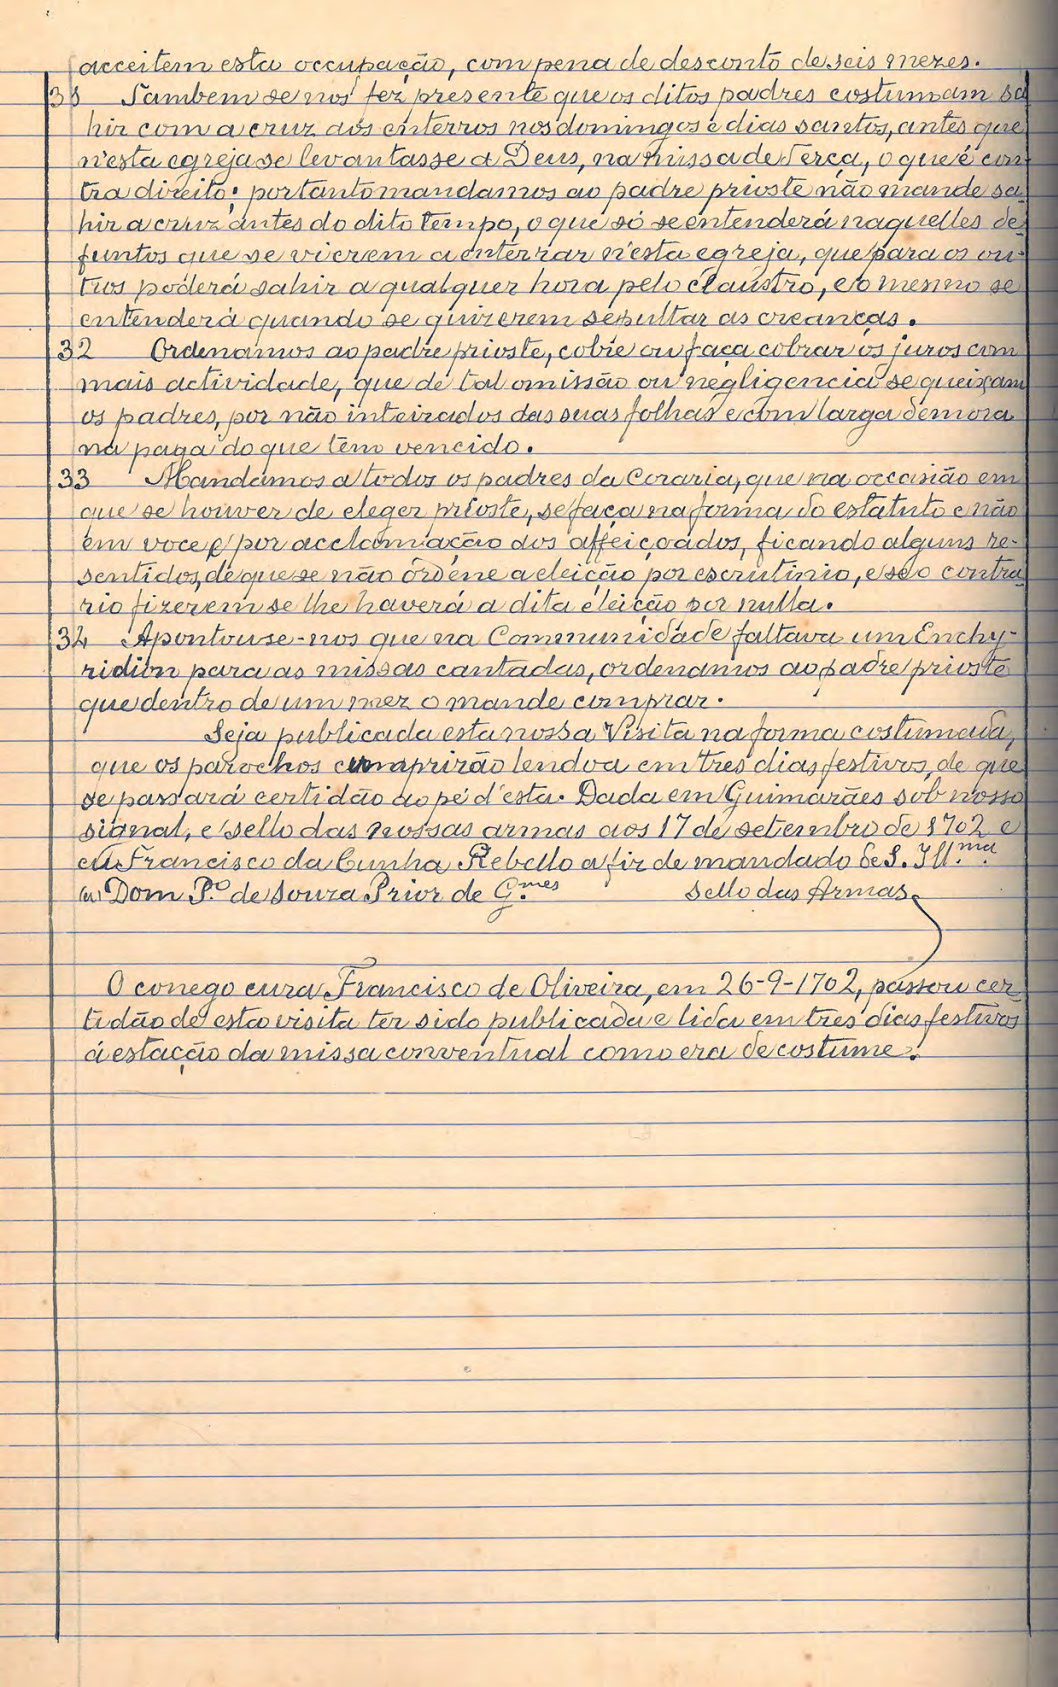 acceitem esta occupação, com pena de desconto de seis mezes.
31 Tambem se nos fez presente que os ditos padres costumam sa
hir com a cruz aos enterros nos domingos e dias santos, antes que
n'esta egreja se levantasse a Deus, na missa de Terça, o que é con
tra direito; portanto mandamos ao padre prioste não mande sa
hir a cruz antes do dito tempo, o que só se entenderá naquelles de
funtos que se vierem a enterrar n'esta egreja, que para os ou-
tros poderá sahir a qualquer hora pelo claustro, e o mesmo se
entenderá quando se quizerem sepultar as creanças.
32 Ordenamos ao padre prioste, cobre ou faça cobrar os juros com
mais actividade, que de tal omissão ou negligencia se queixam
os padres, por não inteirados das suas folhas e com larga demora
na paga do que têm vencido.
33 Mandamos a todos os padres da Coraria, que na occasião em
que se houver de eleger prioste, se faça na forma do estatuto e não
em voce, e por acclamação dos affeiçoados, ficando alguns re-
sentidos, de que se não ordene a eleição por escrutinio, e se o contra
rio fizerem se lhe haverá a dita eleição por nulla.
34 Apontou-se-nos que na Communidade faltava um Enchy-
ridion para as missas cantadas, ordenamos ao padre prioste
que dentro de um mez o mande comprar.
Seja publicada esta nossa Visita na forma costumada,
que os parochos cumprirão lendo-a em tres dias festivos, de que
se passará certidão ao pé d'esta. Dada em Guimarães sob nosso
signal, e sello das nossas armas aos 17 de setembro de 1702 e
eu Francisco da Cunha Rebello a fiz de mandado de S. Ill.ma
(a) Dom P.o de Souza Prior de G.mes Sello das Armas
O conego cura Francisco de Oliveira, em 26-9-1702, passou cer
tidão de esta visita ter sido publicada e lida em tres dias festivos
á estação da missa conventual como era de costume.